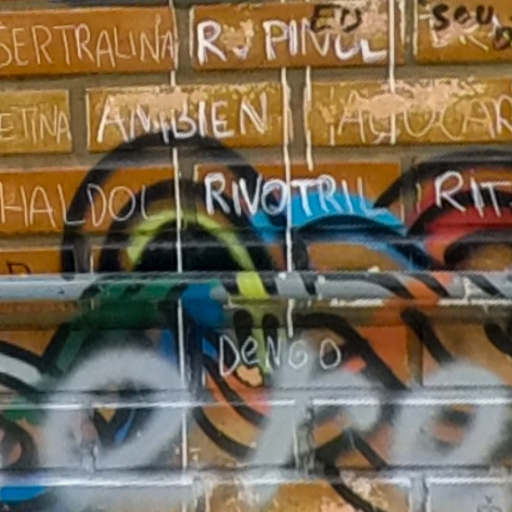 EU SOU
SERTRALINA RUPINOL
ETINA AMBIEN AÇUCAR
HALDOL RIVOTRIL RIT
DENGO